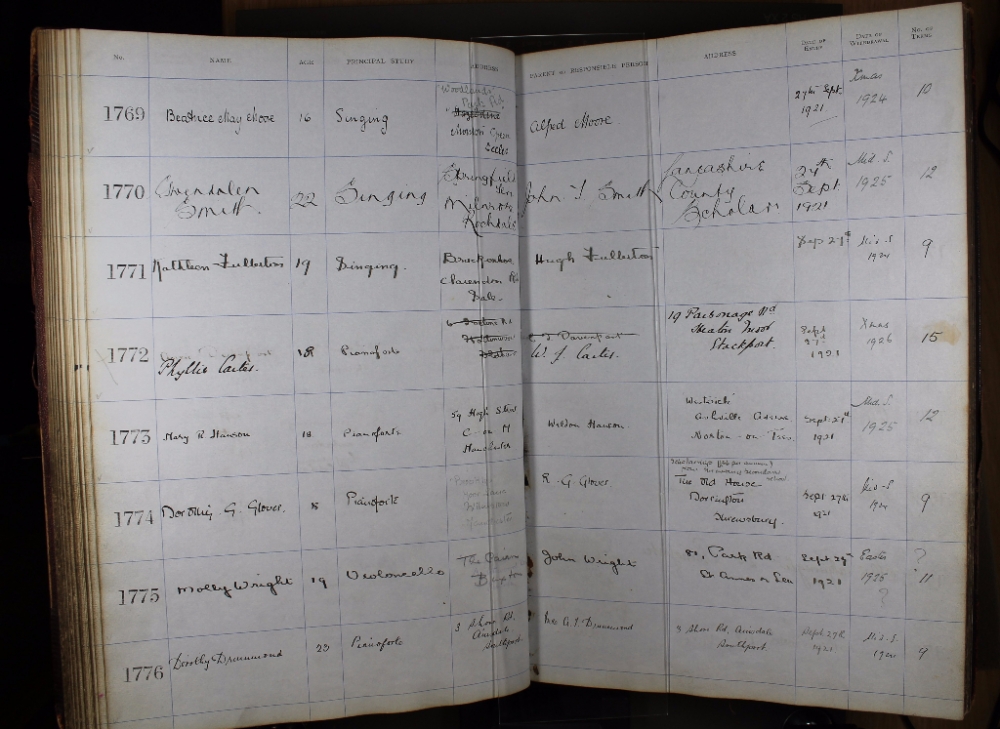 No. NAME AGE PRINCIPAL STUDY ADDRESS PARENT OR RESPONSIBLE PERSON ADDRESS DATE OF ENTRY DATE OF WITHDRAWAL No. OF TERMS
1769 Beatrice May Moore 16 Singing
Eccles
Alfred Moore. 27th Sept. 1921 Xmas 1924 10
1770 Gwendolen Smith. 22 Singing Springfield
Milnrow
Rochdale
John T. Smith Lancashire
County
Scholar 27th Sept 1921 Mid. S. 1925 12
1771 Kathleen Fullerton 19 Singing.
Clarendon Rd
Sale.
Hugh Fullerton Sep 27th Mid-S 1924 9
1772 Phyllis Carter. 18 Pianoforte
W. J. Carter. 19 Parsonage Rd
Heaton Moor
Stockport. Sept 27th 1921 Xmas 1926 15
1773 Mary R Hanson 18 Pianoforte 59 High Street
C. on M
Manchester
Weldon Hanson
Norton-on-Tees. Sept. 27th 1921 Mid. S. 1925 12
1774 Dorothy G. Glover. 18 Pianoforte
R. G. Glover The Old House
Dorrington
Shrewsbury. Sept 27th 1921 Mid-S 1924 9
1775 Molly Wright 19 Violoncello
Buxton
John Wright Park Rd
St Annes on Sea Sept 27th 1921 Easter 1925 ? ? 11
1776 Dorothy Drummond 23 Pianoforte 3 Shore Rd.
Ainsdale
Southport.
Mrs A. S. Drummond 3 Shore Rd, Ainsdale
Southport Sept 27th 1921 Mid. S. 1924 9